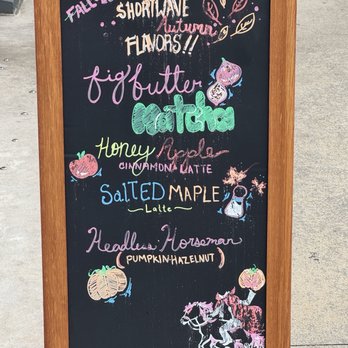 SHORTWAVE
Autumn
FLAVORS!!
fig butter
Matcha
Honey Apple
CINNAMON LATTE
SALTED MAPLE
Latte
Headless Horseman
(PUMPKIN HAZELNUT)